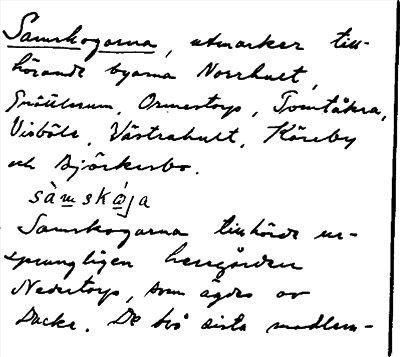 Samskogarna, utmarker till-
hörande byarna Norrhult,
Ormestorp, Tomtåkra,
Visböle, Västrahult, Käreby
och Björkesbo.
sàmskája
Samskogarna tillhörde ur-
sprungligen herrgården
Nedertorp, som ägdes av
Dacke. De två sista medlem-